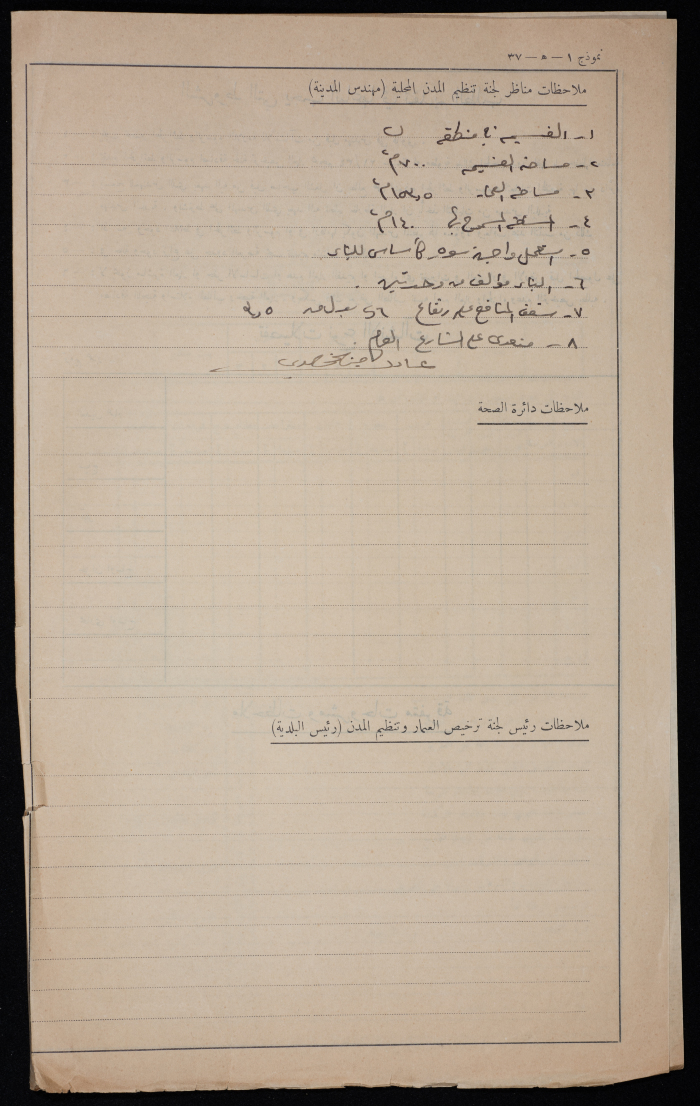 نموذج ١ — ٥ — ٣٧
ملاحظات مناظر لجنة تنظيم المدن المحلية (مهندس المدينة)
١- القسيمة في منطقة ب
٢- مساحة القسيمة ٧٠٠م٢
٣- مساحة البناء م٢
٤- المساحة المسموح بها ١٤٠م٢
٥- استعمل واجهة كأساس للبناء
٦- البناء مؤلف من وحدتين .
٧- سقف المنافع على ارتفاع بدل من
٨- متعدي على الشارع العام .
ملاحظات دائرة الصحة
ملاحظات رئيس لجنة ترخيص العمار وتنظيم المدن (رئيس البلدية)